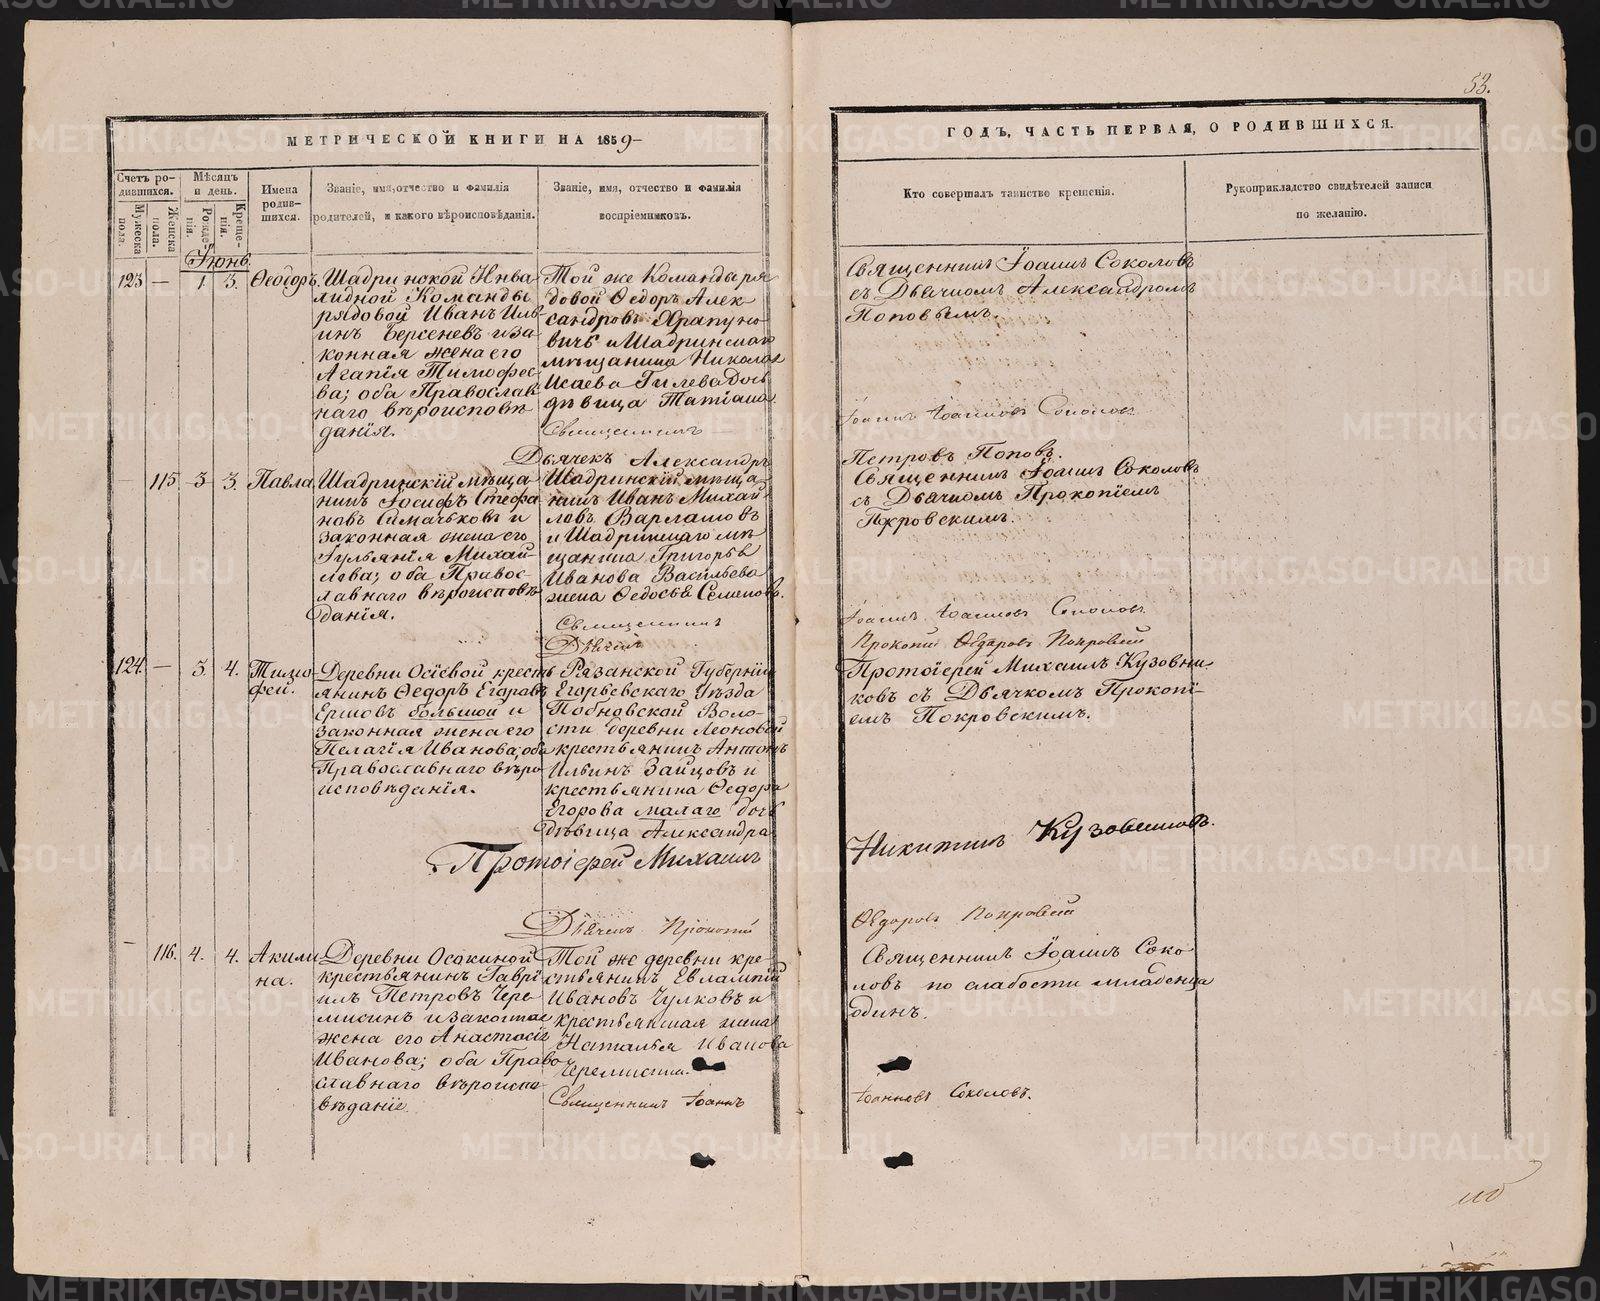 53.
МЕТРИЧЕСКОЙ КНИГИ НА 1859
ГОДЪ, ЧАСТЬ ПЕРВАЯ, О РОДИВШИХСЯ.
Счетъ ро-
дившихся.
Мужеска
пола.
Женска
пола.
Мѣсяцъ
и день.
Рожде-
нія.
Креще-
нія.
Имена
родив-
шихся.
Званіе, имя, отчество и фамилія
родителей, и какого вѣроисповѣданія.
Званіе, имя, отчество и фамилія
воспріемниковъ.
Кто совершалъ таинство крещенія.
Рукоприкладство свидѣтелей записи
по желанію.
Іюнь
123 — 1 3. Ѳеодоръ.
Шадринской Инва-
лидной Команды
рядовой Иванъ Иль-
инъ Берсеневъ и за-
конная жена его
Агапія Тимофее-
ва; оба Православ-
наго вѣроисповѣ-
данія.
Той же Команды ря-
довой Ѳедоръ Алек-
сандровъ Храпуно-
вичь и Шадринскаго
мѣщанина Николая
Исаева Гилева дочь
дѣвица Татіана
Священникъ
Дьячекъ Александръ
Священникъ Іоаннъ Соколовъ
съ Дьячкомъ Александромъ
Поповымъ.
Іоаннъ Іоанновъ Соколовъ
Петровъ Поповъ.
— 115 3 3. Павла
Шадринскій мѣща-
нинъ Іосифъ Стефа-
новъ Симачьковъ и
законная жена его
Іульянія Михай-
лова; оба Правос-
лавнаго вѣроисповѣ-
данія.
Шадринскій мѣща-
нинъ Иванъ Михай-
ловъ Варлашовъ
и Шадринскаго мѣ-
щанина Григорья
Иванова Васильева
жена Ѳедосья Семенов.
Священникъ
Дьячекъ
Священникъ Іоаннъ Соколовъ
съ Дьячкомъ Прокопіемъ
Покровскимъ.
Іоаннъ Іоанновъ Соколовъ
Прокопій Ѳедоровъ Покровскій
124. — 3. 4. Тимо-
фей.
Деревни Осіевой кресть-
янинъ Ѳедоръ Егоровъ
Ершовъ большой и
законная жена его
Пелагія Иванова; оба
Православнаго вѣро-
исповѣданія.
Рязанской Губерніи
Егорьевскаго Уѣзда
Волo-
сти деревни Леоновой
крестьянинъ Антонъ
Ильинъ Зайцовъ и
крестьянина Ѳедора
Егорова малаго дочь
дѣвица Александра
Протоіерей Михаилъ
Дьячекъ Прокопій
Протоіерей Михаилъ Кузовни-
ковъ съ Дьячкомъ Прокопі-
емъ Покровскимъ.
Никитинъ Кузовниковъ.
Ѳедоровъ Покровскій
— 116. 4. 4. Акили-
на.
Деревни Осокиной
крестьянинъ Гаврі-
илъ Петровъ Чере-
мисинъ и законная
жена его Анастасія
Иванова; оба Право-
славнаго вѣроиспо-
вѣданіе.
Той же деревни кре-
стьянинъ Евлампій
Ивановъ Чулковъ и
крестьянская жена
Наталья Иванова
Черемисина.
Священникъ Іоаннъ
Священникъ Іоаннъ Соко-
ловъ по слабости младенца
одинъ.
Іоанновъ Соколовъ.
METRIKI.GASO-URAL.RU